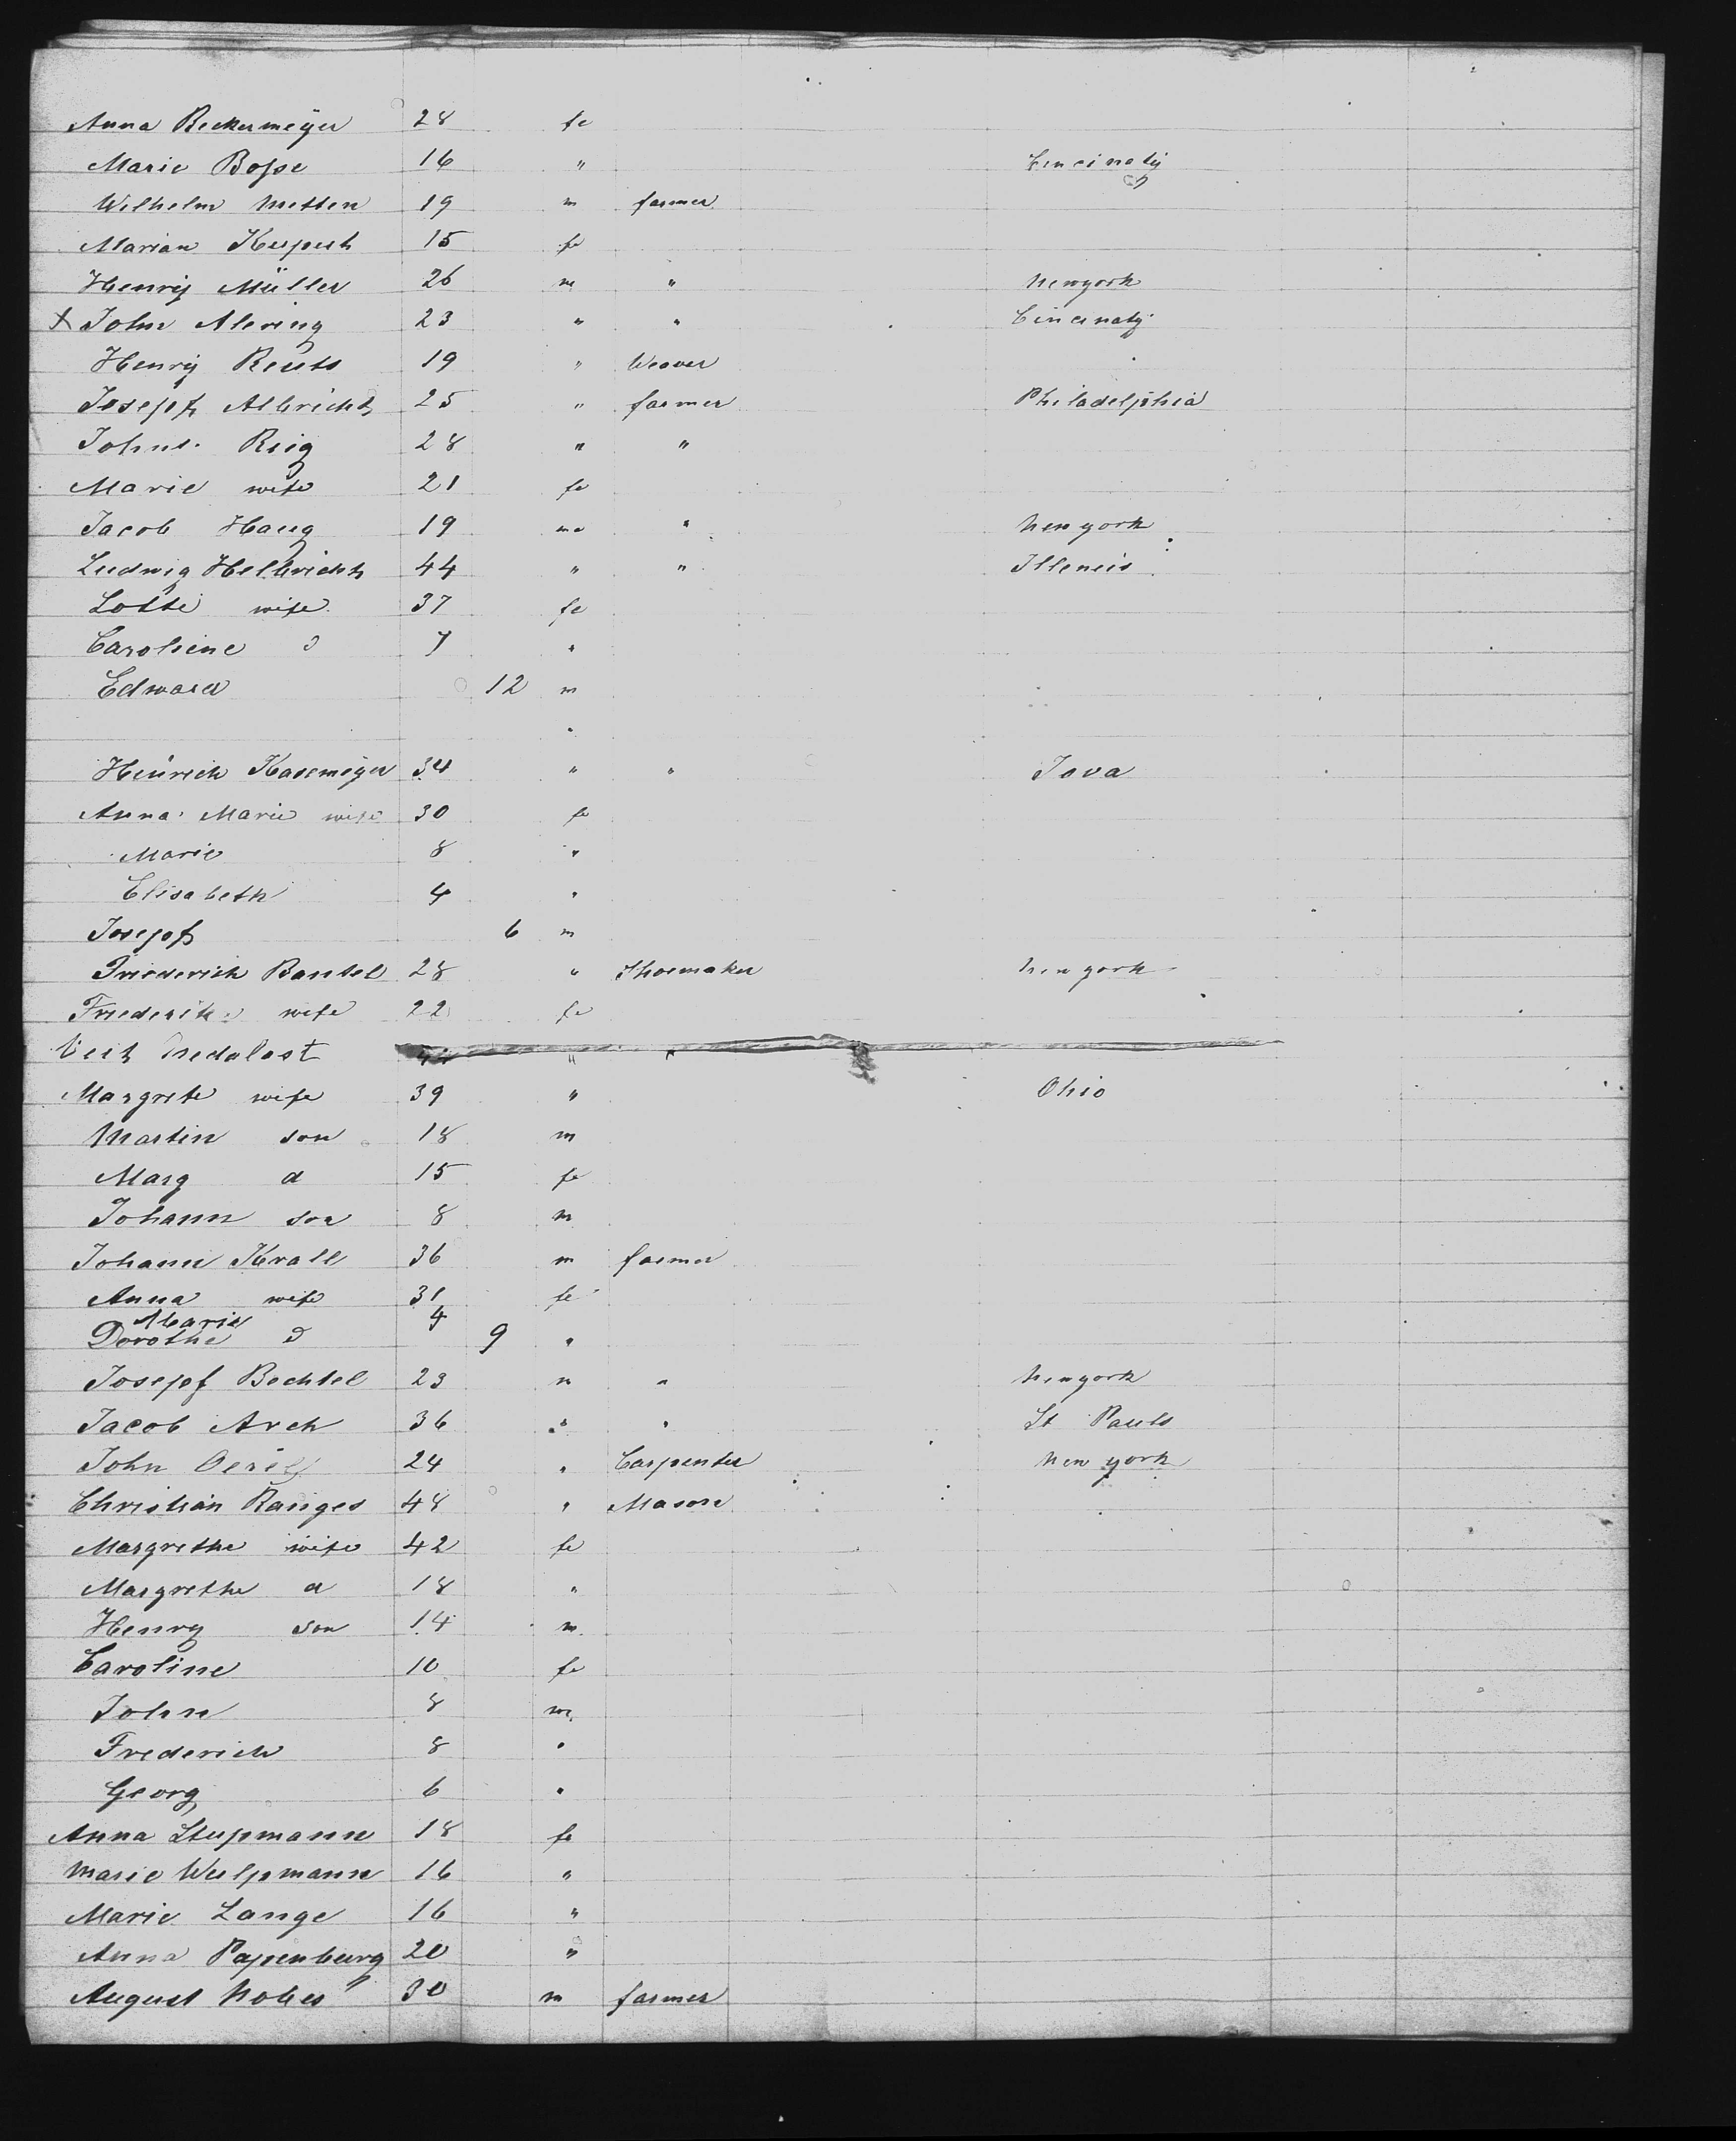 Anna Beckermeÿer 28 fe
Marie Boſse 16 " Cincinatÿ
Wilhelm Metten 19 m farmer
Marian 15 fe
Henrÿ Müller 26 m " Newyork
x John Alering 23 " " Cincinatÿ
Henrÿ Reuts 19 " Weaver
Josepf Albricht 25 " farmer Philadelphia
Johns. Reig 28 " "
Marie wife 21 fe
Jacob Haug 19 ma " New york
Ludwig Helbricht 44 " " Illeneis
Lotte wife 37 fe
Caroliene d 7 "
Edward 12 m
"
Heinrich Kasemeÿer 34 " " Iova
Anna Marie wife 30 fe
Marie 8 "
Elisabeth 4 "
Josepf 6 m
Friederich Bantel 28 " Shoemaker New york
Friederike wife 22 fe
Veit " "
Margrete wife 39 " Ohio
Martin son 18 m
Marg d 15 fe
Johann son 8 m
Johann Krall 36 m farmer
Anna wife 31 fe
Marie 4
Dorothe d 9 "
Josepf Bechtel 23 m " Newyork
Jacob Arch 36 " " St Pauls
John 24 " Carpenter New york
Christian Ranges 48 " Mason
Margrethe wife 42 fe
Margrethe d 18 "
Henry son 14 m
Caroline 10 fe
John 8 m
Frederich 8 "
Georg 6 "
Anna Stupmann 18 fe
Marie Wulpmann 16 "
Marie Lange 16 "
Anna Papenburg 20 "
August Nobes 30 m farmer